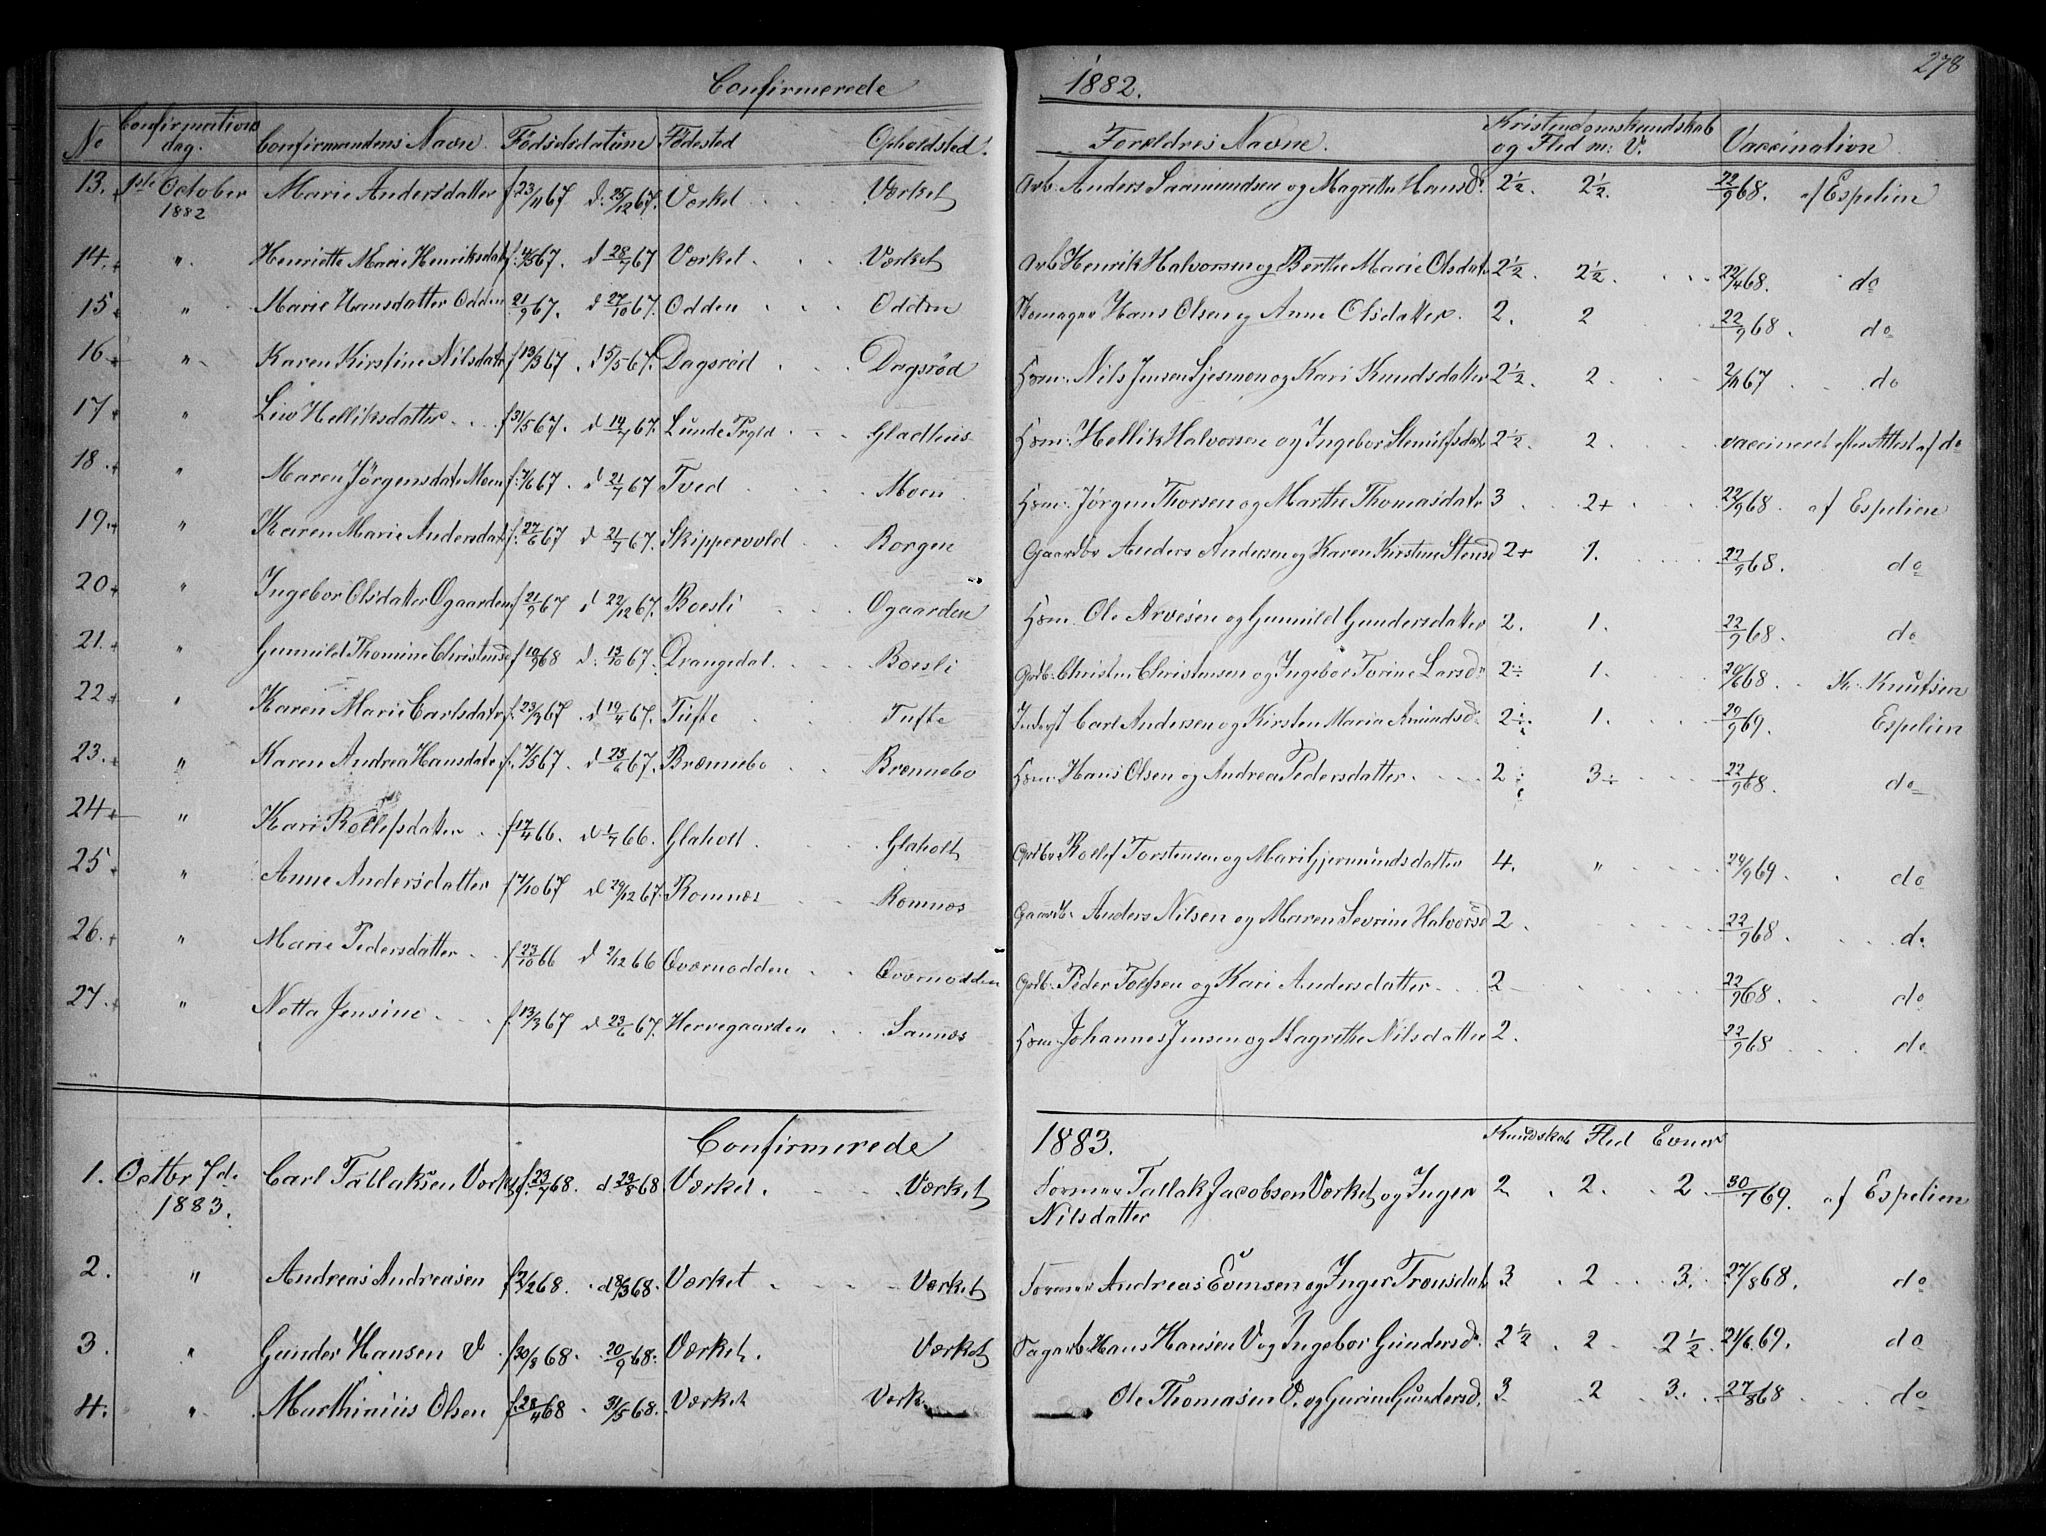 278
Confirmerede 1882.
No Confirmations dag. Confirmandens Navn. Fødselsdatum Fødested Opholdsted. Forældres Navne. Kristendomskundskab og Flid m: V. Vaccination
13. 1ste October 1882 Marie Andersdatter f 23/11 67 d. 25/12 67. Værket Værket Arb. Anders Saamundsen og Magrethe Hansd. 2½. 2½. 22/9 68. af Espelien
14. " Henriette Marie Henriksdat f. 67. d 28/7 67 Værket Værket Arb. Henrik Halvorsen og Berthe Marie Olsdat 2½. 2½. 68. do
15 " Marie Hansdatter Odden 21/9 67. d 27/10 67. Odden Odden Skomager Hans Olsen og Anne Olsdatter. 2. 2 22/9 68. do
16 " Karen Kirstine Nilsdatt f 13/3 67. d 5/5 67. Dagsrød Dagsrød Hsm: Nils Jensen og Kari Knudsdatter 2½. 2 67 do
17 " Liv Helliksdatter f 31/5 67. d 14/7 67. Lunde Prgld Gladhus Hsm: Hellik Halvorsen og Ingebor 2½. 2. vaccineret efter Attest af do
18. " Maren Jørgensdat Moen f. 7/6 67. d 21/7 67 Tved Moen Hsm: Jørgen Thorsen og Marthe Thomasdatr 3 2+ 22/9 68. af Espelien
19. " Karen Marie Andersdat f. 27/6 67 d 21/7 67. Skippervold Borgen Gaardbr Anders Andersen og Karen Kirstine Stensd 2+ 1. 22/9 68. do
20 " Ingebor Olsdatter Øgaarden f 21/9 67 d 22/12 67. Boesli Øgaarden Hsm. Ole Arvesen og Gunnild Gundersdatter 2. 1. 22/9 68. do
21. " Gunnild Thomine Christensd f 68 d. 13/10 67. Drangedal. Boesli Grdb. Christen Christensen og Ingebor Torine Larsd. 2÷ 1. 20/6 68. K. Knutsen
22 " Karen Marie Carlsdatr f. 23/3 67. d 19/4 67. Tufte Tufte Carl Andersen og Kirsten Maria Amundsd. 2÷ 1. 20/9 69. Espelien
23. " Karen Andrea Hansdatr f. 7/5 67. d 23/6 67. Brænnebo Brænnebo Hsm: Hans Olsen og Andrea Pedersdatter. 2÷ 3÷ 22/9 68. do
24 " Kari Rollefsdatter f 17/4 66. d 1/7 66. Glaholt. Glaholt Grdbr Rollef Torstensen og Mari Gjermundsdatter 4. " 24/9 69. do
25 " Anne Andersdatter f 7/10 67 d 29/12 67. Romnæs Romnæs Gaardb. Anders Nilsen og Maren Sevrine Halvorsd 2. 22/9 68. do
26. " Marie Pedersdatter f 23/10 66 d 2/12 66 Qværnodden Qværnodden Grdb. Peder Tolfsen og Kari Andersdatter 2 22/9 68. do
27. " Netta Jensine f. 13/3 67 d 23/6 67. Herregaarden Sannæs Hsm. Johannes Jensen og Magrethe Nilsdatter 2. 22/9 68 do
Confirmerede 1883. Kundskab Flid Evner
1. Octbr 7de 1883. Carl Tallaksen Værket f. 23/7 68. d 23/8 68. Værket. Værket Former Tallak Jacobsen Værket og Inger Nilsdatter 2. 2. 2. 30/7 69. af Espelien
2. " Andreas Andreasen f 2/2 68. d 8/3 68. Værket Værket Former Andreas Evensen og Inger Tronsdatr 3. 2 3. 27/8 68. do
3. " Gunder Hansen V f 30/8 68. 20/9 68. Værket. Værket Sagarb. Hans Hansen V og Ingebor Gundersd. 2½ 2 2½ 21/6 69. do
4. " Marthinius Olsen f. 28/4 68 31/5 68. Værket Værk. Ole Thomasen V. og Gurine Gundersd. 3. 2 3. 27/8 68 do